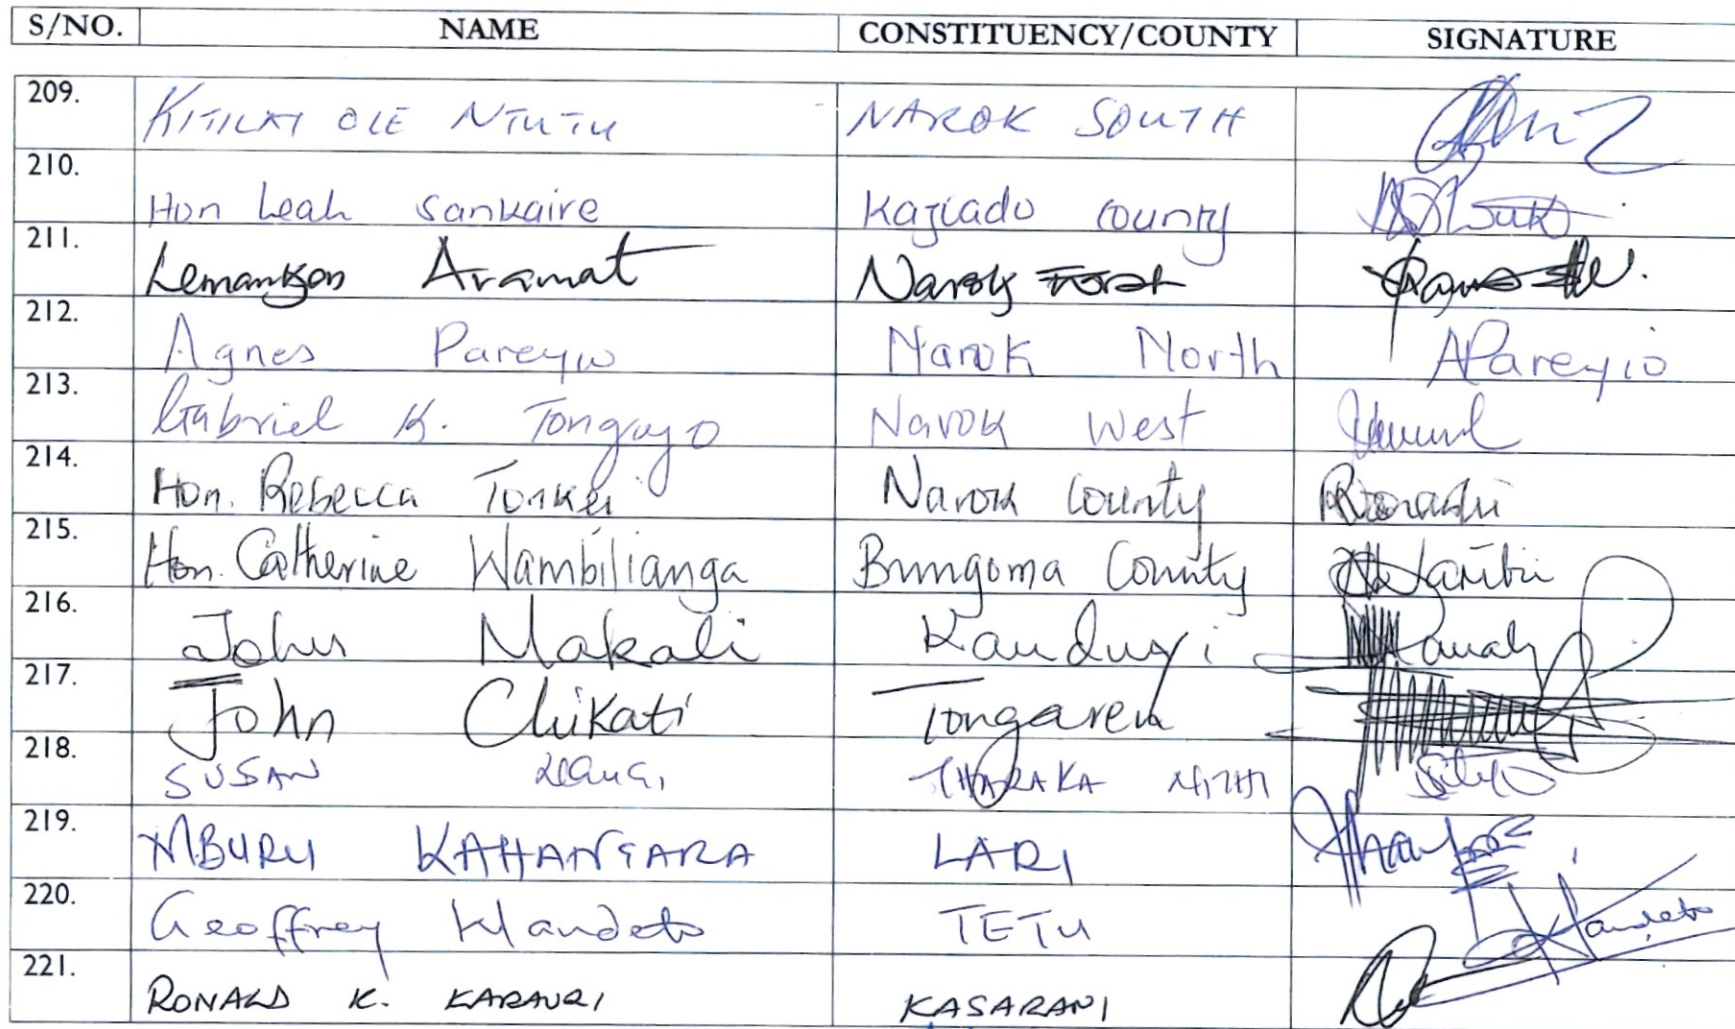 S/NO. NAME CONSTITUENCY/COUNTY SIGNATURE
209. KITILAI OLE NTUTU NAROK SOUTH
210. Hon Leah Sankaire Kajiado county
211. Lemanken Aramat Narok East
212. Agnes Pareyio Narok North APareyio
213. Gabriel K. Tongoyo Narok West
214. Hon. Rebecca Tonkei Narok County
215. Hon. Catherine Wambilianga Bungoma County
216. John Makali Kanduyi
217. John Chikati Tongaren
218. SUSAN THARAKA NITHI
219. MBURU KAHANGARA LARI
220. Geoffrey Wandeto TETU Wandeto
221. RONALD K. KARAURI KASARANI